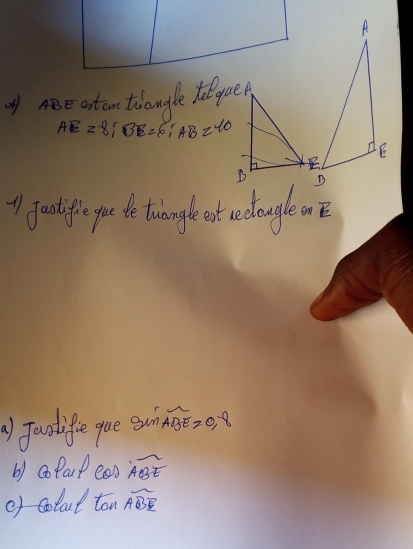 ABE est un triangle tel que
AE = 8 ; BE = 6 ; AB = 10
A
B
E
A
B
E
1) Justifie que le triangle est rectangle en E
a) Justifie que sin ABE = 0,8
b) Calcul cos ABE
c) Calcul tan ABE